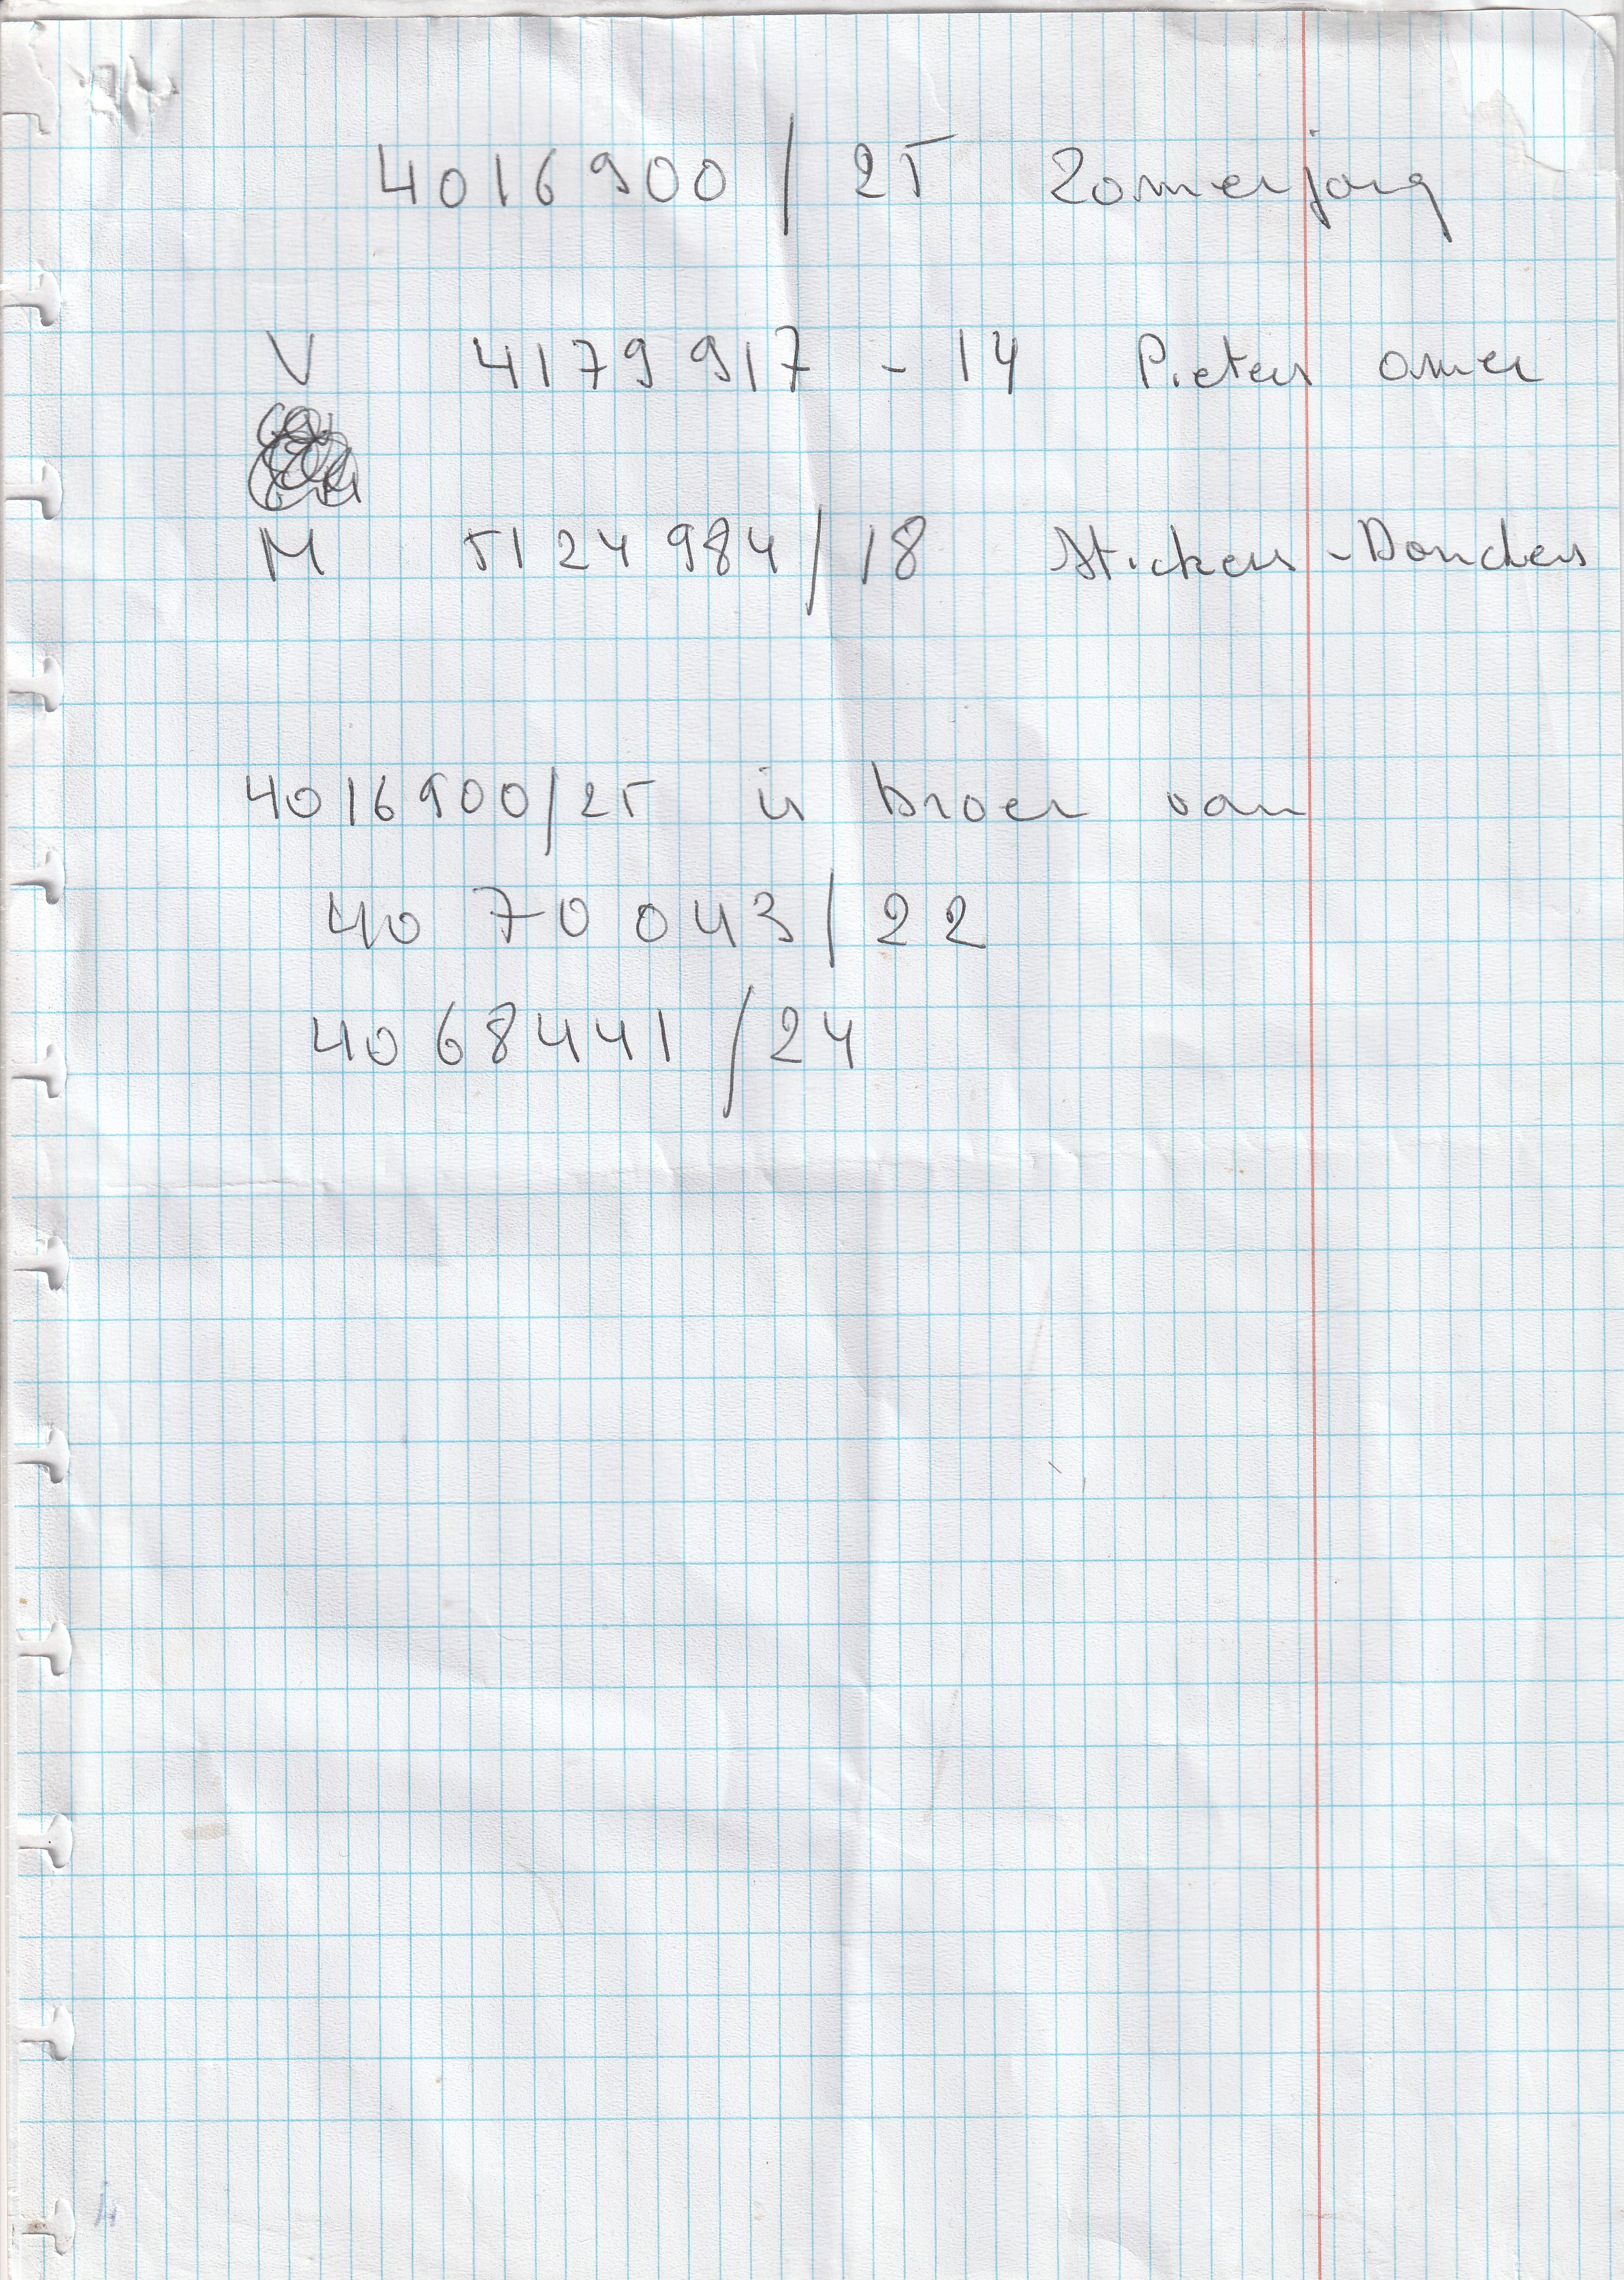 4016900 / 25 Zomerjong
V 4179917 - 14 Pieters omer
M 5124984 / 18 Stickers - Donckers
4016900/25 is broer van
4070043 / 22
4068441 / 24